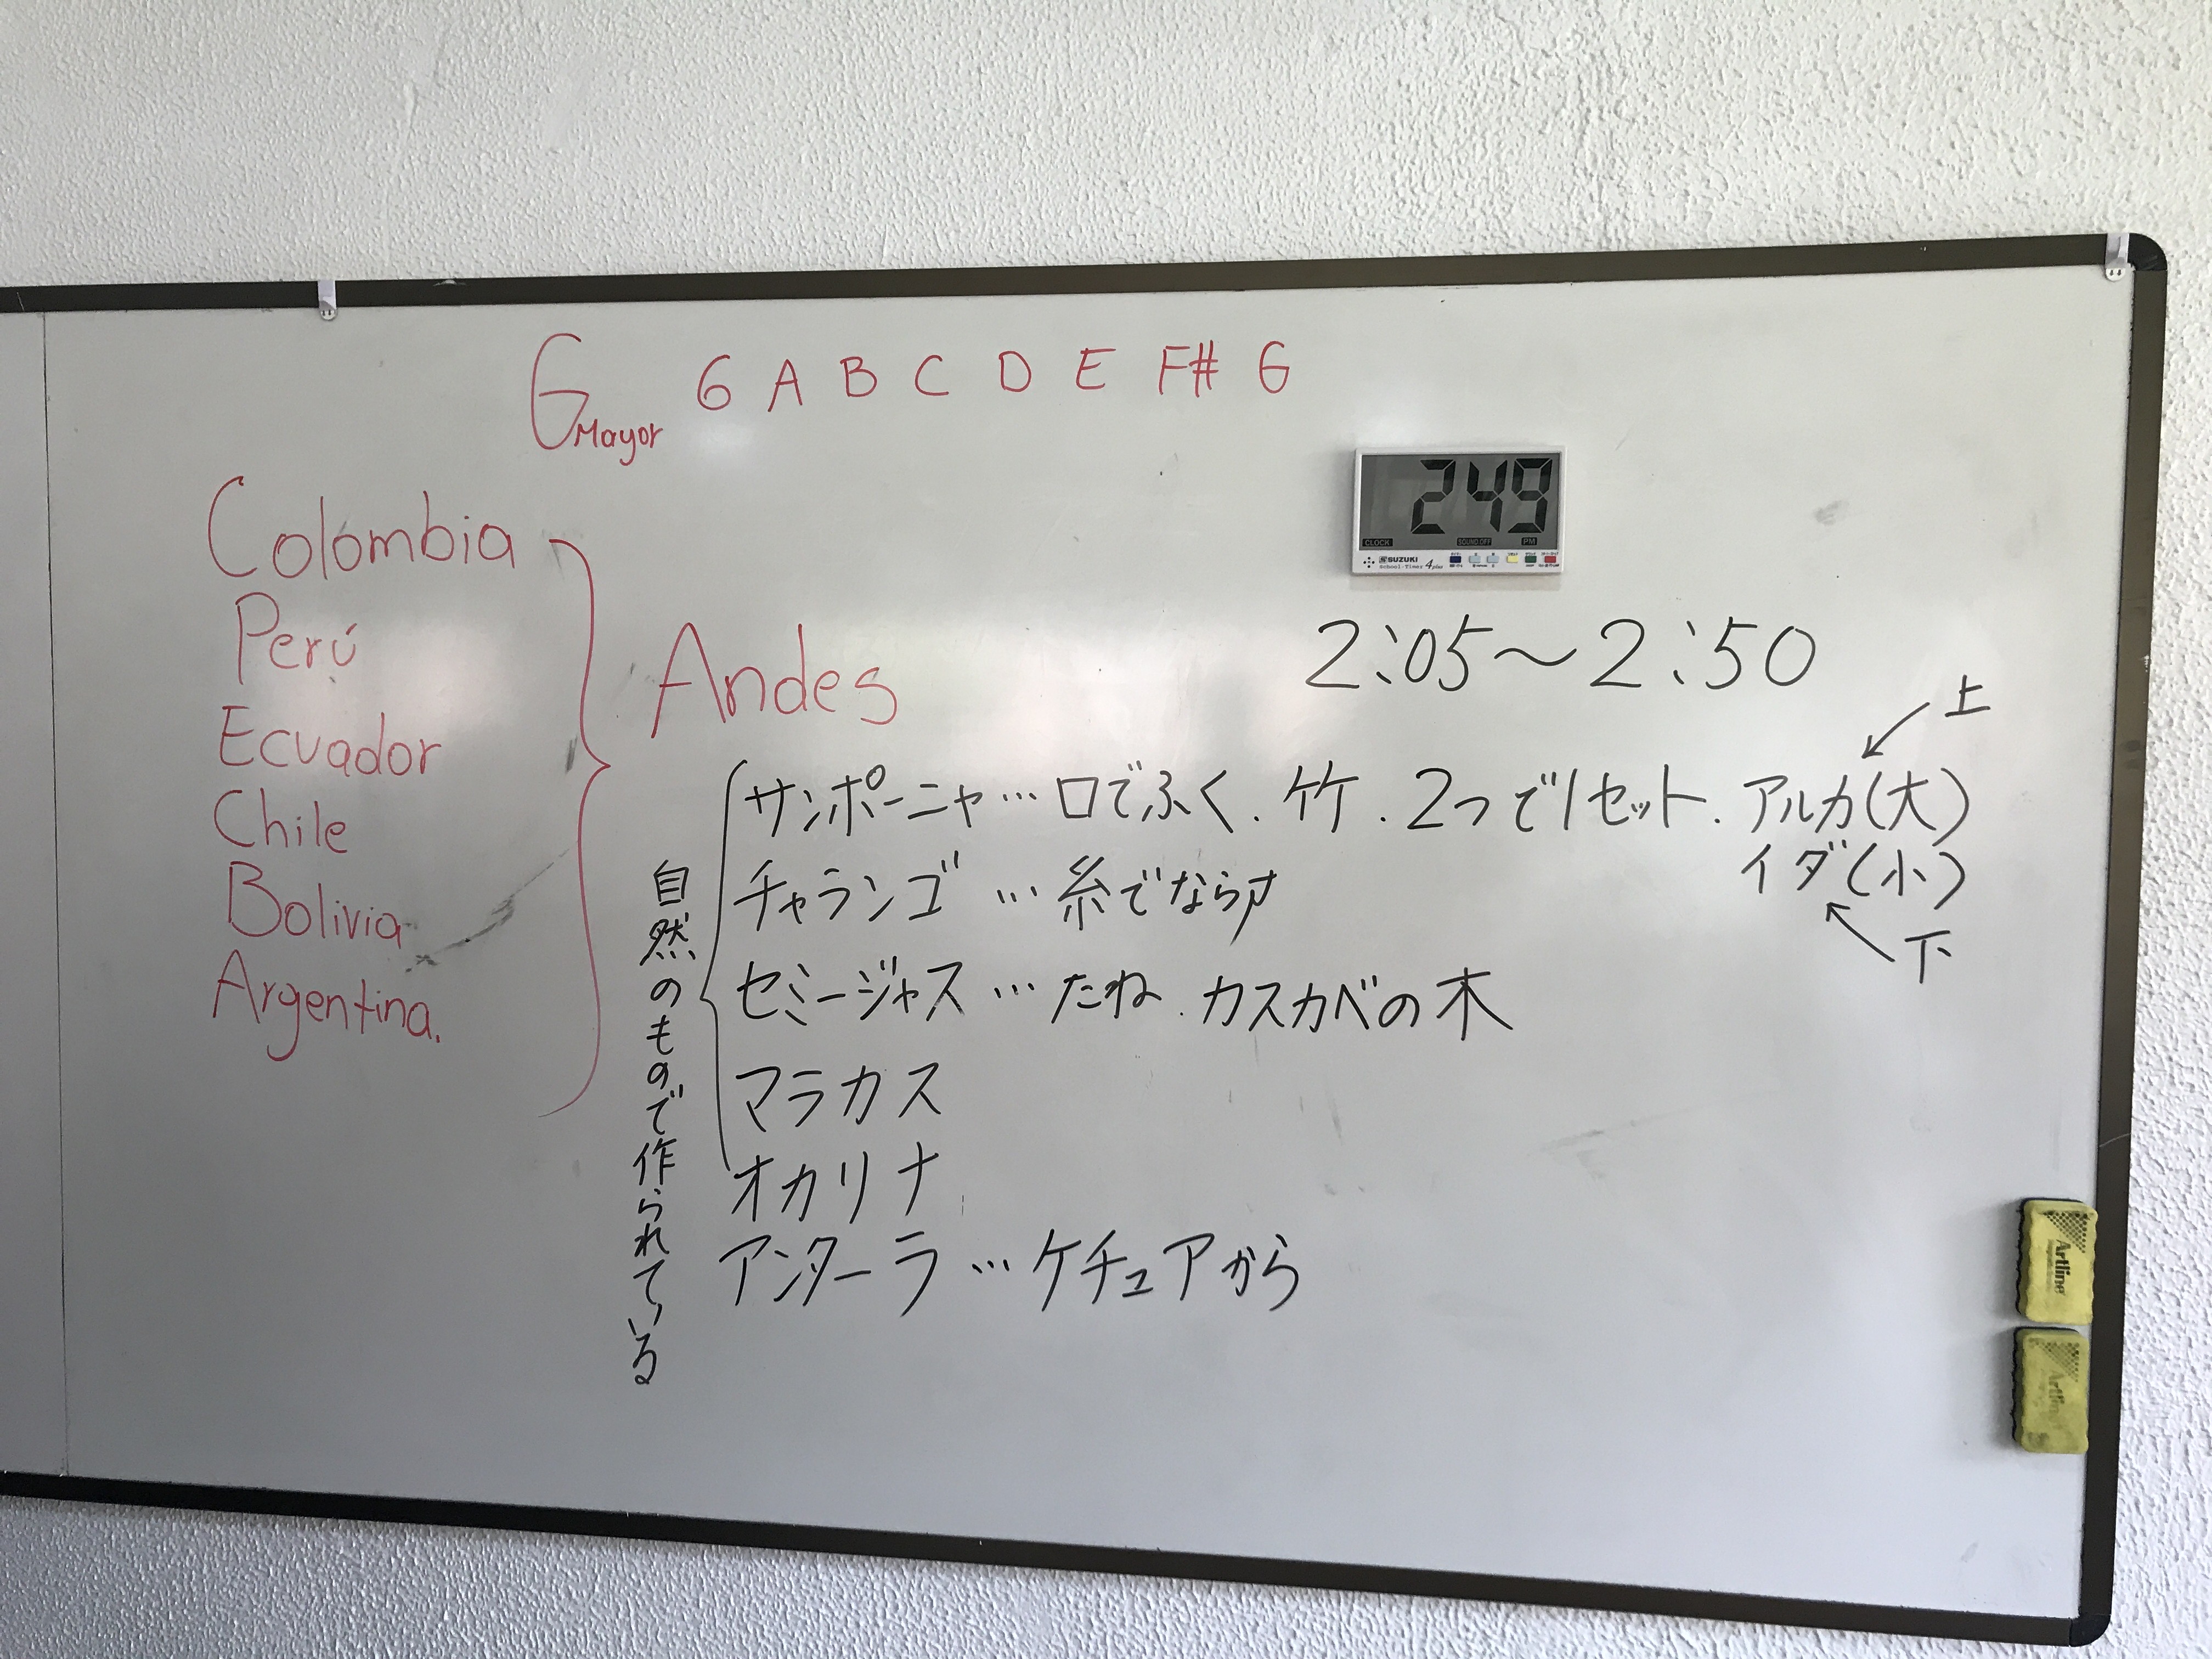 G Mayor G A B C D E F# G
249
CLOCK SOUND OFF PM
SUZUKI
School-Timer 4 plus
Colombia
Perú
Ecuador
Chile
Bolivia
Argentina.
Andes
2:05〜2:50
上
サンポーニャ…口でふく.竹.2つで1セット.アルカ(大)
イダ(小)
下
チャランゴ…糸でならす
セミージャス…たね.カスカベの木
マラカス
オカリナ
アンターラ…ケチュアから
自然のもので作られている
Artline
Artline